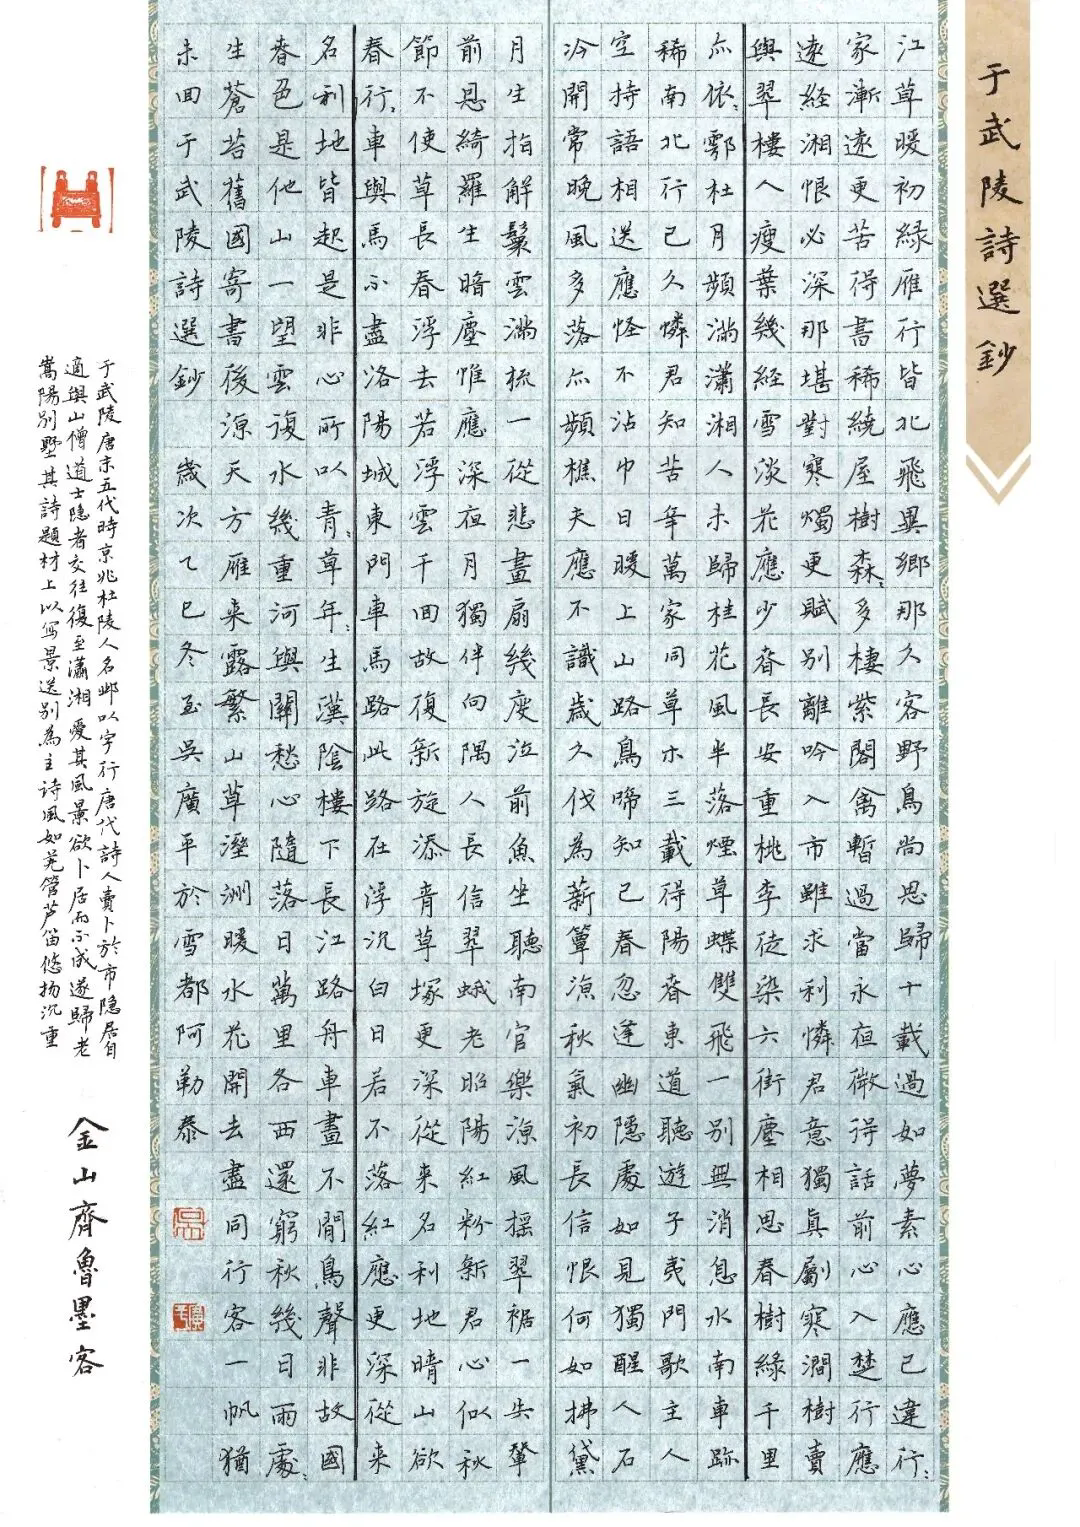 于武陵詩選鈔
江草暖初綠雁行皆北飛異鄉那久客野鳥尚思歸十載過如夢素心應已違行:
家漸遠更苦得書稀繞屋樹森:多棲紫閣禽暫過當永夜微得話前心入楚行應
遠經湘恨必深那堪對寒燭更賦別離吟入市雖求利憐君意獨真劚寒澗樹賣
與翠樓人瘦葉幾經雪淡花應少春長安重桃李徒染六街塵相思春樹綠千里
亦依:鄠杜月頻滿瀟湘人未歸桂花風半落煙草蝶雙飛一別無消息水南車跡
稀南北行已久憐君知苦辛萬家同草木三載得陽春東道聽遊子夷門歌主人
空持語相送應怪不沾巾日暖上山路鳥啼知已春忽逢幽隱處如見獨醒人石
冷開常晚風多落亦頻樵夫應不識歲久伐為薪簟涼秋氣初長信恨何如拂黛
月生指解鬟雲滿梳一從悲畫扇幾度泣前魚坐聽南宮樂涼風搖翠裾一失輦
前恩綺羅生暗塵惟應深夜月獨伴向隅人長信翠蛾老昭陽紅粉新君心似秋
節不使草長春浮去若浮雲千回故復新旋添青草塚更深從来名利地晴山欲
春行:車與馬不盡洛陽城東門車馬路此路在浮沉白日若不落紅應更深從来
名利地皆起是非心所以青:草年:生漢陰樓下長江路舟車晝不閒鳥聲非故國
春色是他山一望雲復水幾重河與關愁心隨落日萬里各西還窮秋幾日雨處:
生蒼苔舊國寄書後涼天方雁来露繁山草溼洲暖水花開去盡同行客一帆猶
未回于武陵詩選鈔 歲次乙巳冬至吳廣平於雪都阿勒泰
吳
廣平
于武陵唐末五代時京兆杜陵人名鄴以字行唐代詩人賣卜於市隱居自
適與山僧道士隱者交往復至瀟湘愛其風景欲卜居而不成遂歸老
嵩陽別墅其詩題材上以寫景送別為主詩風如羌管芦笛悠揚沉重
金山齊魯墨客